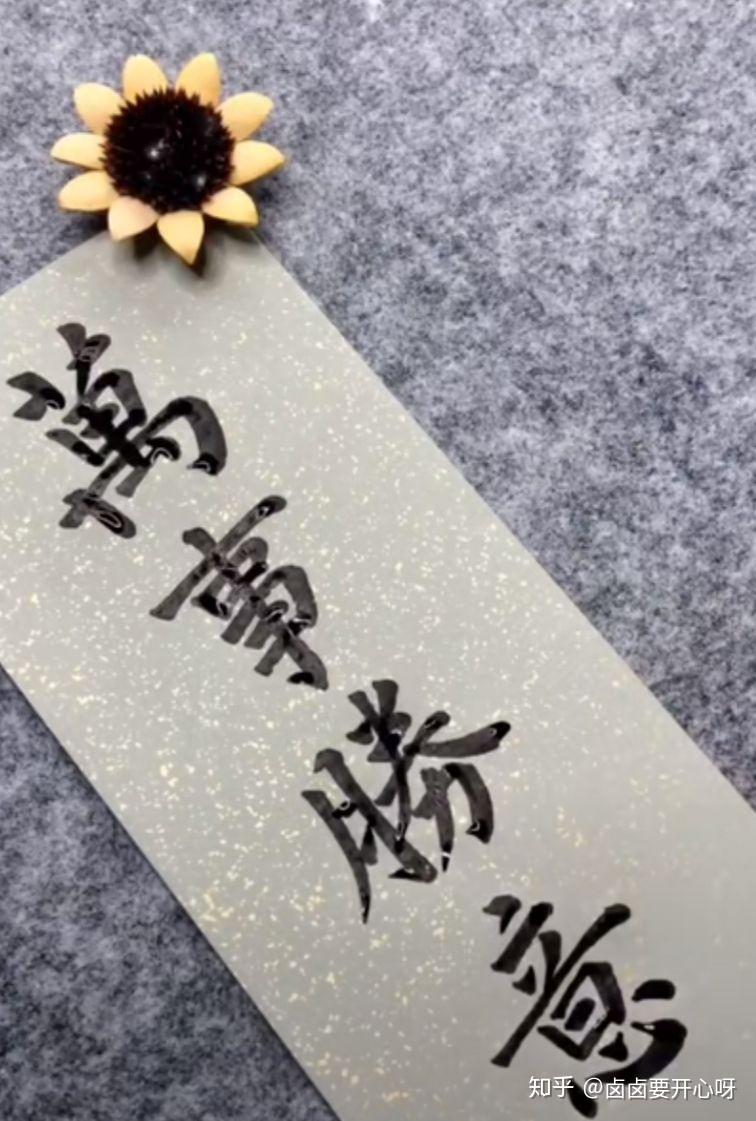 萬事勝意
知乎 @卤卤要开心呀